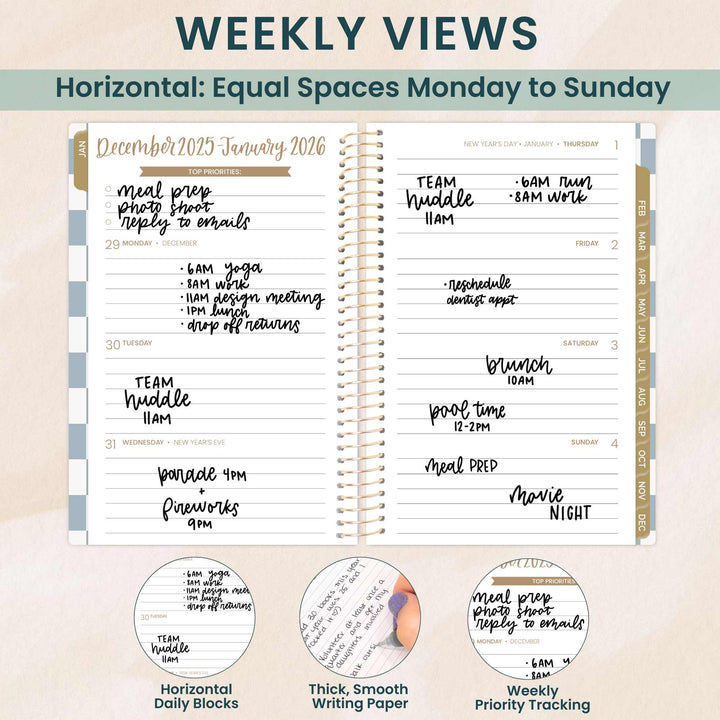 WEEKLY VIEWS
Horizontal: Equal Spaces Monday to Sunday
JAN
December 2025-January 2026
TOP PRIORITIES:
meal prep
photo shoot
reply to emails
29 MONDAY • DECEMBER
• 6AM yoga
• 8AM work
• 11AM design meeting
• 1PM lunch
• drop off returns
30 TUESDAY
TEAM
huddle
11AM
31 WEDNESDAY • NEW YEAR'S EVE
parade 4PM
+
fireworks
9PM
NEW YEAR'S DAY • JANUARY • THURSDAY 1
TEAM
huddle
11AM
• 6AM run
• 8AM work
FRIDAY 2
• reschedule
dentist appt
SATURDAY 3
brunch
10AM
pool time
12-2PM
SUNDAY 4
meal PREP
movie
NIGHT
FEB
MAR
APR
MAY
JUN
JUL
AUG
SEP
OCT
NOV
DEC
• 6AM yoga
• 8AM work
• 11AM design meet
• 1PM lunch
• drop off returns
30 TUESDAY
TEAM
huddle
11AM
NEW YEAR'S EVE
Horizontal
Daily Blocks
30 books this year
year was 25 and I
rocked it
Volunteer at least once a
quarter and get my
daughters involved
Thick, Smooth
Writing Paper
2025
TOP PRIORITIES
meal prep
photo shoot
reply to emails
MONDAY • DECEMBER
• 6AM
• 8AM
Weekly
Priority Tracking